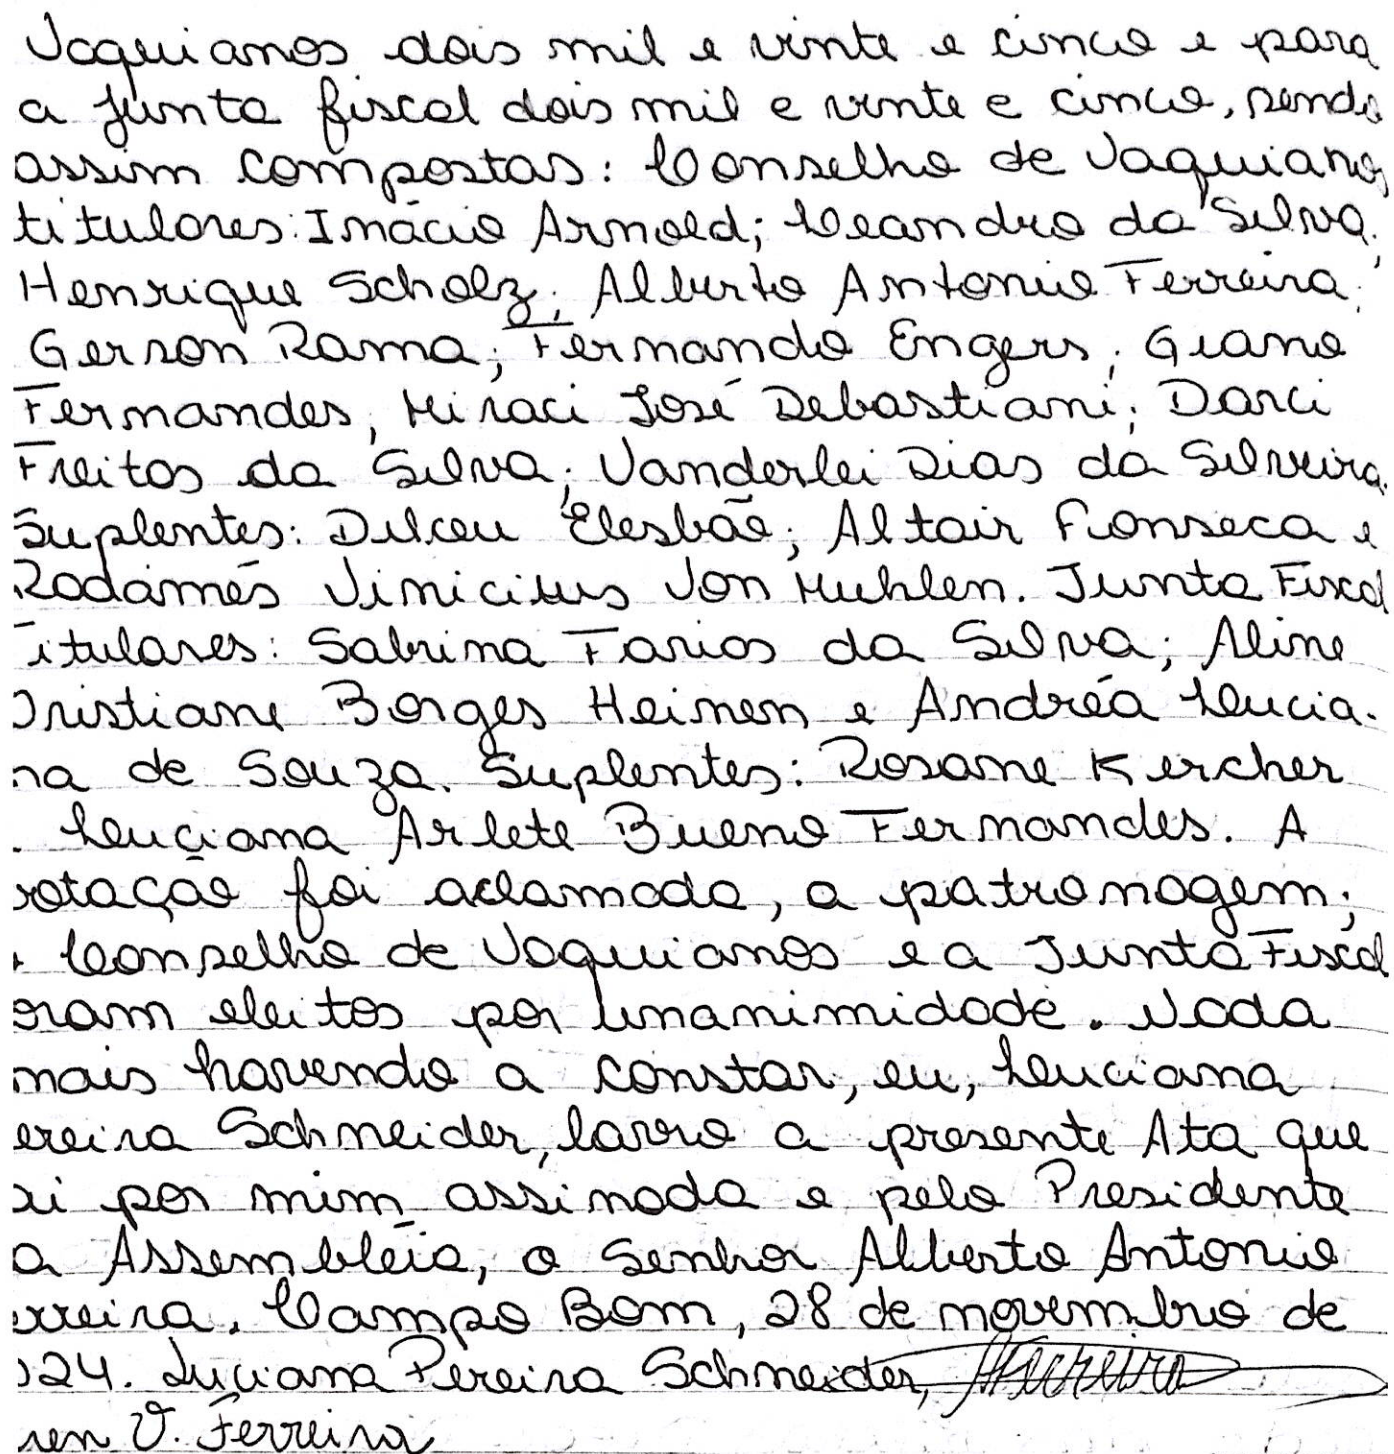 Vaquianos dois mil e vinte e cinco e para
a junta fiscal dois mil e vinte e cinco, sendo
assim compostas: Conselho de Vaquianos
titulares: Inácio Arnold; Leandro da Silva;
Henrique Scholz; Alberto Antonio Ferreira;
Gerson Rama; Fernando Engers; Giano
Fernandes, Miraci José Debastiani; Darci
Freitas da Silva; Vanderlei Dias da Silveira.
Suplentes: Dilceu Elesbão; Altair Fonseca e
Rodámés Vinicius Von Muhlen. Junta Fiscal
Titulares: Sabrina Farias da Silva; Aline
Cristiane Borges Heinen e Andréa Lucia-
na de Souza. Suplentes: Rosane Kercher
. Luciana Arlete Bueno Fernandes. A
votação foi aclamada, a patronagem;
Conselho de Vaquianos e a Junta Fiscal
oram eleitos por unanimidade. Nada
mais havendo a constar, eu, Luciana
ereira Schneider, lavro a presente Ata que
ai por mim assinada e pelo Presidente
a Assembléia, o Senhor Alberto Antonio
erreira. Campo Bom, 28 de novembro de
024. Luciana Pereira Schneider, AFerreira
ren V. Ferreira